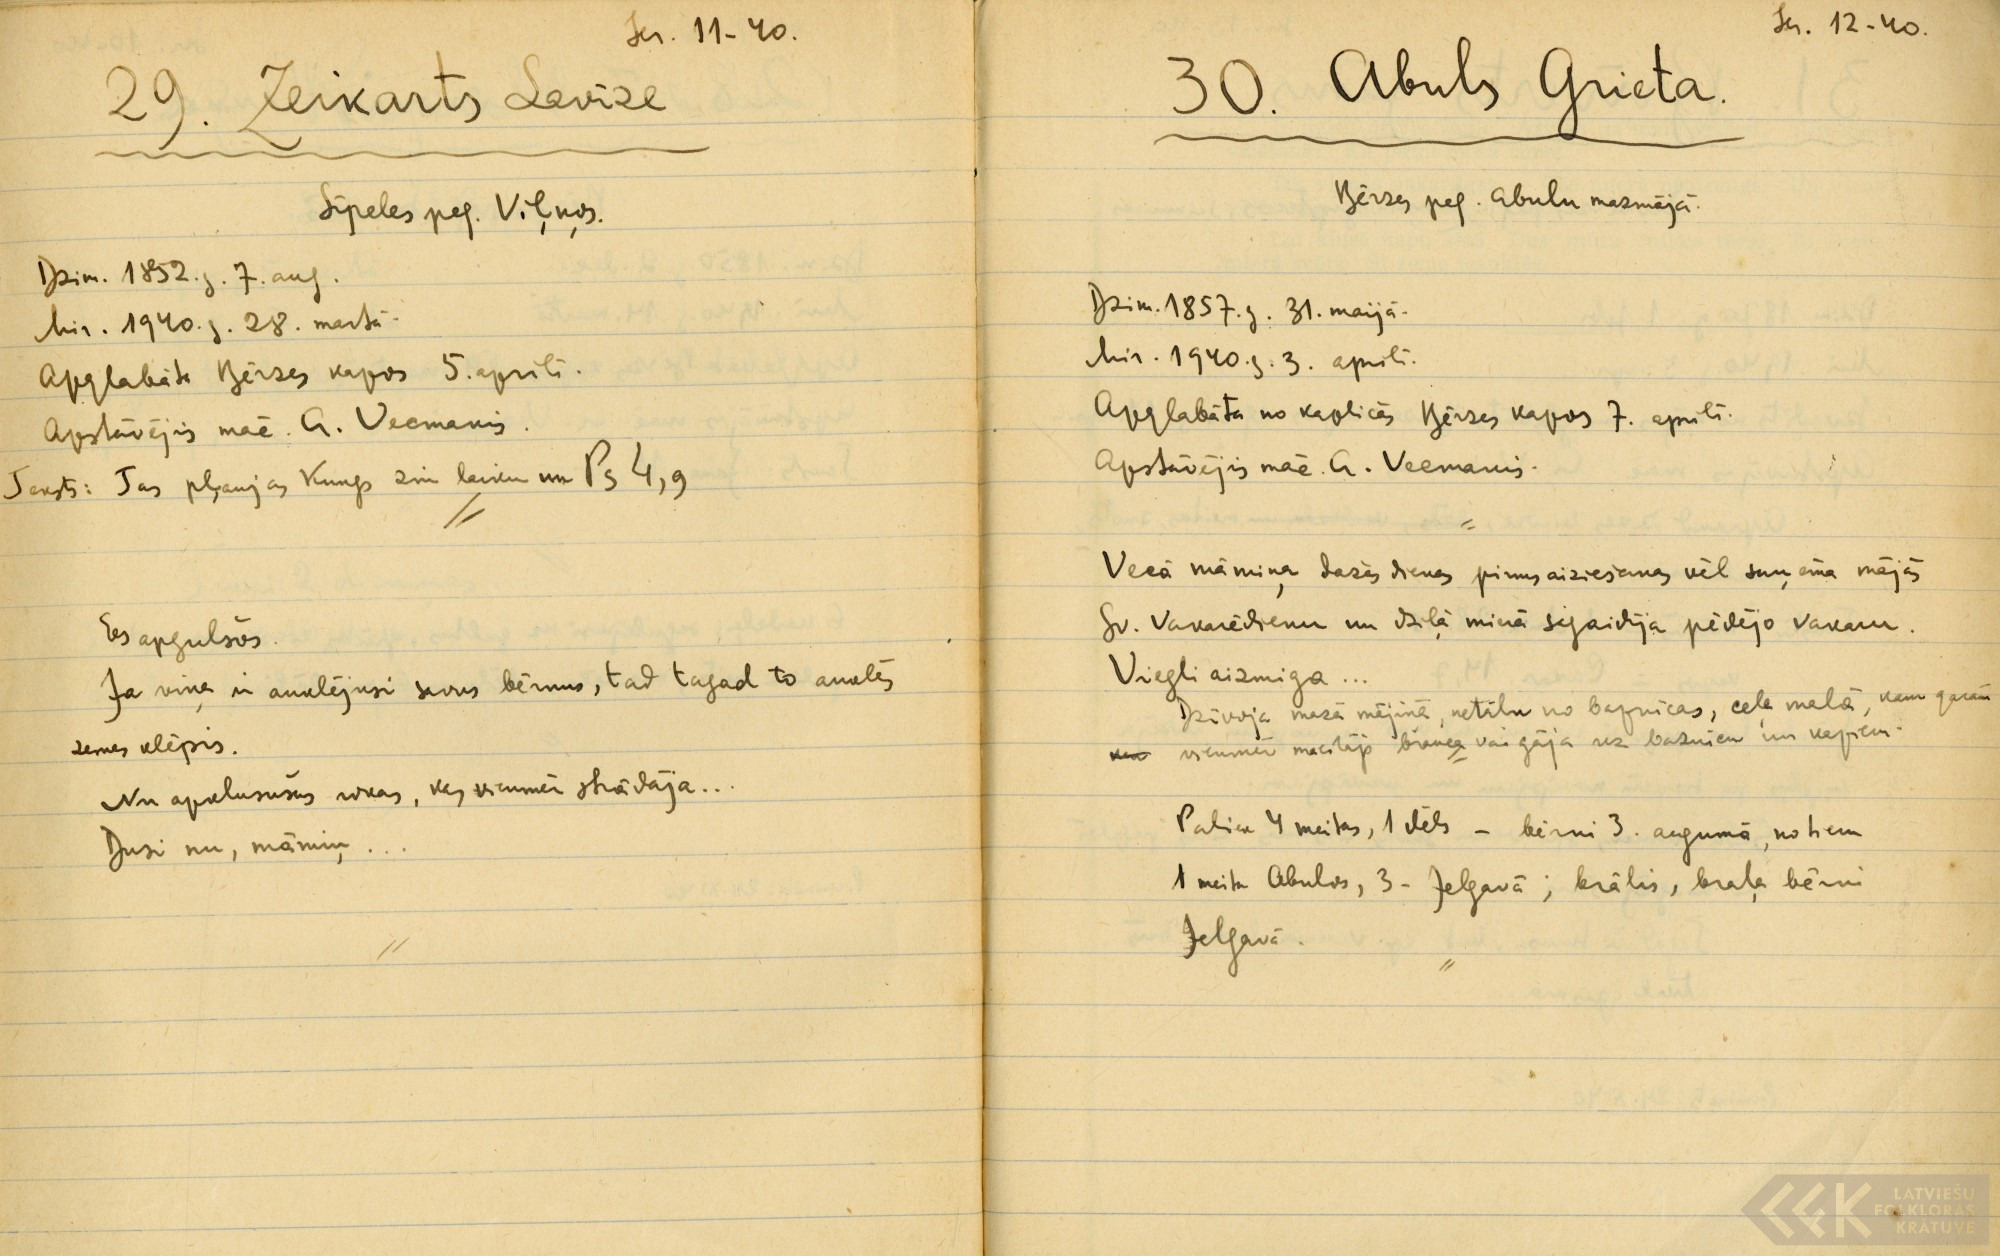 Ser. 11-40.
29. Zeikarts Levīze
Sīpeles pag. Viļņos.
Dzim. 1852.g. 7. aug.
Mir. 1940.g. 28. martā.
Apglabāta Bērzes kapos 5. aprīlī.
Apstāvējis māc. A. Vecmanis.
Teksts: Tas pļaujas Kungs zin laiku un Ps 4,9
Es apgulšos.
Ja viņa ir auklējusi savus bērnus, tad tagad to auklēs
zemes klēpis.
Nu apklusušas rokas, kas vienmēr strādāja...
Dusi nu, māmiņ...
Ser. 12-40.
30. Abuls Grieta.
Bērzes pag. Abulu mazmājā.
Dzim. 1857.g. 31. maijā.
Mir. 1940.g. 3. aprīlī.
Apglabāta no kaplicas Bērzes kapos 7. aprīlī.
Apstāvējis māc. A. Vecmanis.
Vecā māmiņa dažas dienas pirms aiziešanas vēl saņēma mājās
Sv. Vakarēdienu un dziļā mierā sagaidīja pēdējo vakaru.
Viegli aizmiga...
Dzīvoja mazā mājiņā, netālu no baznīcas, ceļa malā, kam garām
vienmēr mācītājs brauca vai gāja uz baznīcu un kapiem.
Paliek 4 meitas, 1 dēls - bērni 3. augumā, no tiem
1 meita Abulos, 3 - Jelgavā; brālis, brāļa bērni
Jelgavā.
LATVIEŠU
FOLKLORAS
KRĀTUVE